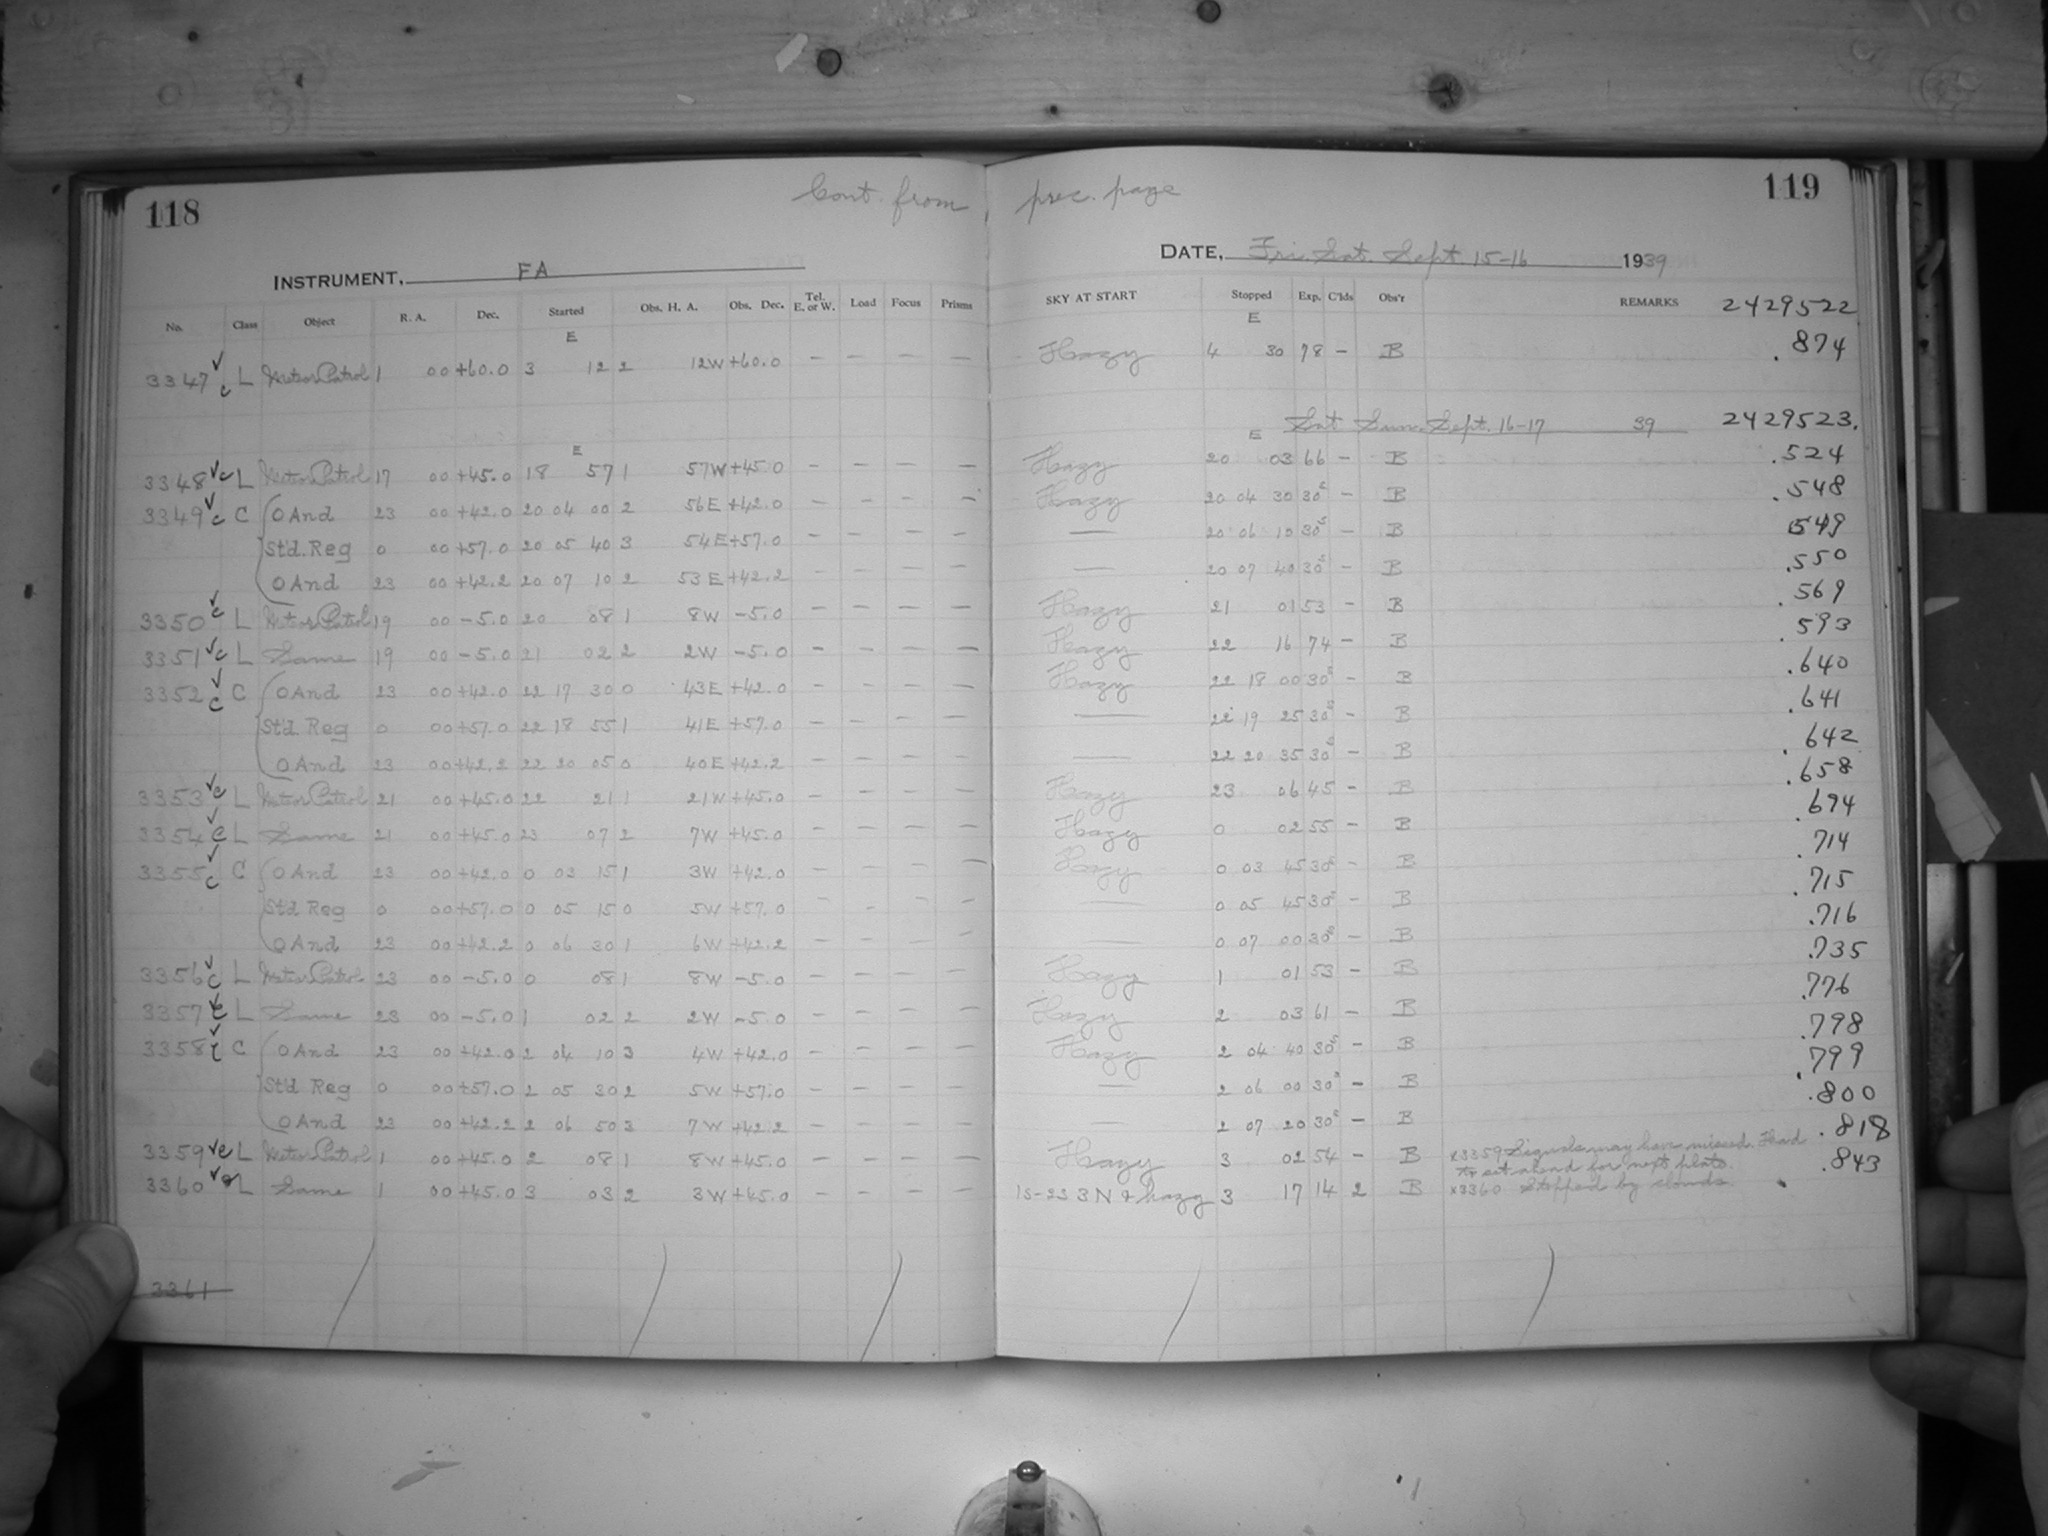 118 Cont. from prec. page 119
INSTRUMENT, FA DATE, Fri. Sat. Sept. 15-16 1939
No. Class Object R. A. Dec. Started Obs. H. A. Obs. Dec. Tel. E. or W. Load Focus Prisms SKY AT START Stopped Exp. C'lds Obs'r REMARKS 2429522
E E
3347 ✓ c L Meteor Patrol 1 00 +60.0 3 12 2 12W +60.0 — — — — Hazy 4 30 78 — B .874
Sat Sun. Sept. 16-17 39 2429523.
E E
3348 ✓ c L Meteor Patrol 17 00 +45.0 18 57 1 57W +45.0 — — — — Hazy 20 03 66 — B .524
3349 ✓ c C O And 23 00 +42.0 20 04 00 2 56E +42.0 — — — — Hazy 20 04 30 30s — B .548
St'd. Reg 0 00 +57.0 20 05 40 3 54E +57.0 — — — — — 20 06 10 30s — B .549
O And 23 00 +42.2 20 07 10 2 53E +42.2 — — — — — 20 07 40 30s — B .550
3350 ✓ c L Meteor Patrol 19 00 -5.0 20 08 1 8W -5.0 — — — — Hazy 21 01 53 — B .569
3351 ✓ c L Same 19 00 -5.0 21 02 2 2W -5.0 — — — — Hazy 22 16 74 — B .593
3352 ✓ c C O And 23 00 +42.0 22 17 30 0 43E +42.0 — — — — Hazy 22 18 00 30s — B .640
St'd Reg 0 00 +57.0 22 18 55 1 41E +57.0 — — — — — 22 19 25 30s — B .641
O And 23 00 +42.2 22 20 05 0 40E +42.2 — — — — — 22 20 35 30s — B .642
3353 ✓ c L Meteor Patrol 21 00 +45.0 22 21 1 21W +45.0 — — — — Hazy 23 06 45 — B .658
3354 ✓ c L Same 21 00 +45.0 23 07 2 7W +45.0 — — — — Hazy 0 02 55 — B .694
3355 ✓ c C O And 23 00 +42.0 0 03 15 1 3W +42.0 — — — — Hazy 0 03 45 30s — B .714
St'd Reg 0 00 +57.0 0 05 15 0 5W +57.0 — — — — — 0 05 45 30s — B .715
O And 23 00 +42.2 0 06 30 1 6W +42.2 — — — — — 0 07 00 30s — B .716
3356 ✓ c L Meteor Patrol 23 00 -5.0 0 08 1 8W -5.0 — — — — Hazy 1 01 53 — B .735
3357 ✓ c L Same 23 00 -5.0 1 02 2 2W -5.0 — — — — Hazy 2 03 61 — B .776
3358 ✓ c C O And 23 00 +42.0 2 04 10 3 4W +42.0 — — — — Hazy 2 04 40 30s — B .798
St'd Reg 0 00 +57.0 2 05 30 2 5W +57.0 — — — — — 2 06 00 30s — B .799
O And 23 00 +42.2 2 06 50 3 7W +42.2 — — — — — 2 07 20 30s — B .800
3359 ✓ c L Meteor Patrol 1 00 +45.0 2 08 1 8W +45.0 — — — — Hazy 3 02 54 — B x3359 Signals may have missed. Had .818
to set ahead for next plate.
3360 ✓ L Same 1 00 +45.0 3 03 2 3W +45.0 — — — — 15-25 3 N & hazy 3 17 14 2 B x3360 Stopped by clouds. .843
3361